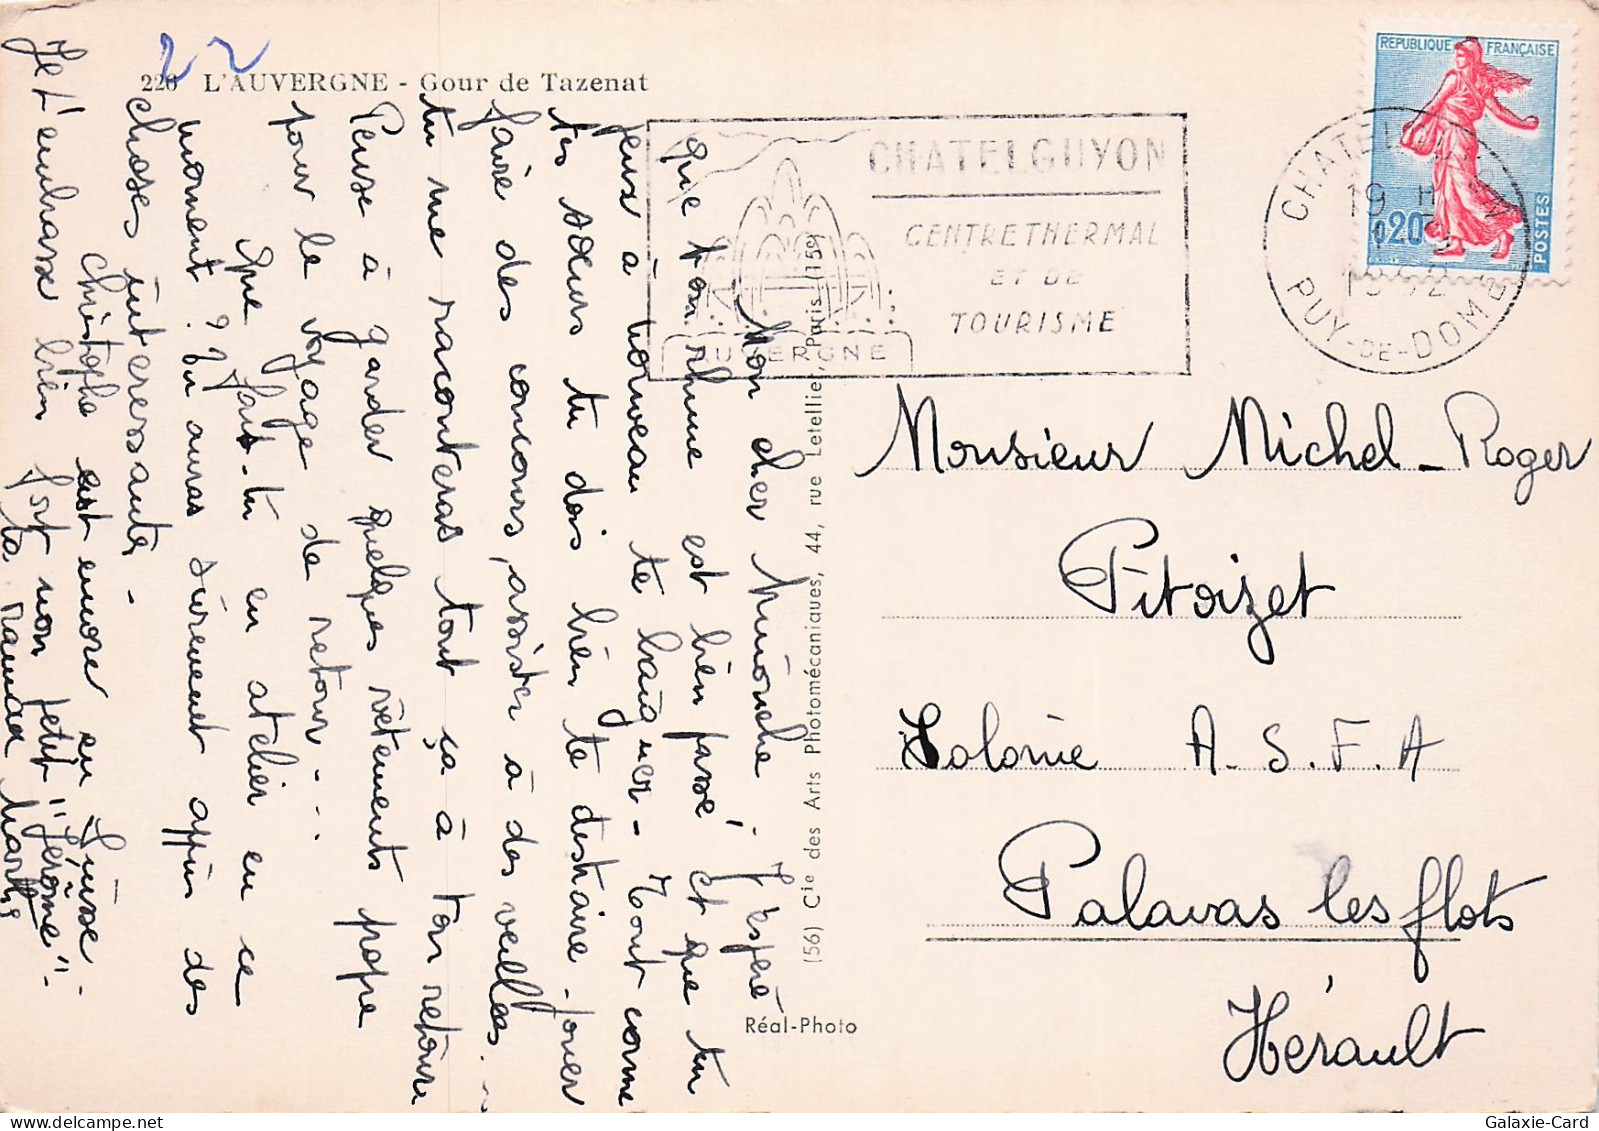 22
220 L'AUVERGNE - Gour de Tazenat
REPUBLIQUE FRANÇAISE
0,20
POSTES
CHATELGUYON
CENTRE THERMAL
ET DE
TOURISME
AUVERGNE
CHATELGUYON
19 H
PUY-DE-DOME
Mon cher Minouche. J'espère
que ton rhume est bien passé et que tu
peux à nouveau te baigner - Tout comme
tes sœurs tu dois bien te distraire - jouer
faire des concours, assister à des veillées...
tu me raconteras tout ça à ton retour
Pense à garder quelques vêtements propre
pour le voyage de retour...
Que fais-tu en atelier en ce
moment ? Tu auras sûrement appris des
choses intéressantes -
Christophe est encore en Suisse.
Je t'embrasse bien fort mon petit "Jérôme".
ta maman
Monsieur Michel-Roger
Pitoizet
Colonie A.S.F.A
Palavas les flots
Hérault
(56) Cie des Arts Photomécaniques, 44, rue Letellier, Paris (15e)
Réal-Photo
Galaxie-Card
www.delcampe.net